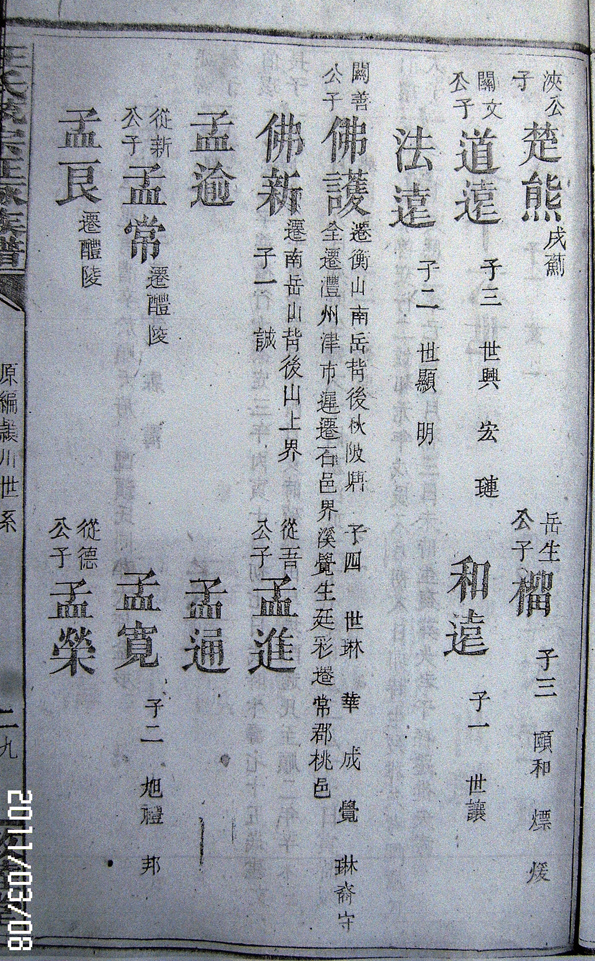 浹公
子
楚熊
戌薊
岳生
公子
榴
子三 頤和 熛 煖
關文
公子
道遠
子三 世興 宏 璉
和遠
子一 世讓
法遠
子二 世顯 明
關善
公子
佛護
遷衡山南岳背後秋陂 子四 世琳 華 成 覺 琳裔守
全遷澧州津市遲遷石邑界溪覺生廷彩遷常郡桃邑
佛新
遷南岳山背後山上界
子一 誠
從吾
公子
孟進
孟逾
孟通
從新
公子
孟常
遷醴陵
孟寬
子二 旭禮 邦
孟良
遷醴陵
從德
公子
孟榮
族譜
原編 川世系
二九
2011/03/08